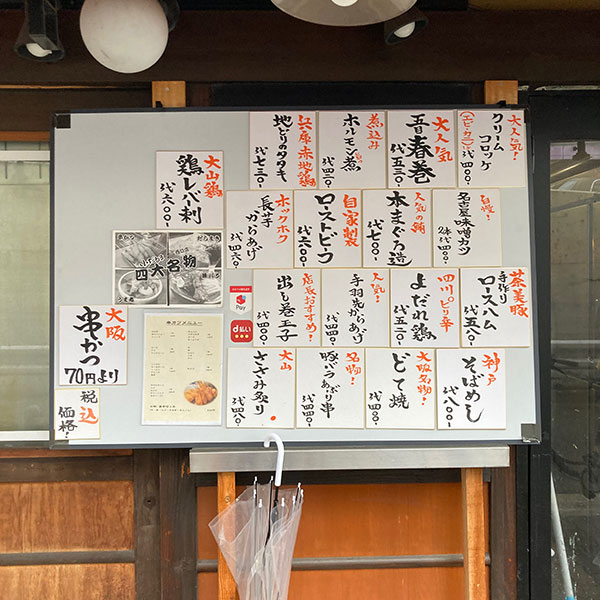 大人気!
クリーム
コロッケ
(エビ・カニ)
代四二〇-
大人気
五目春巻
代五三〇-
煮込み
ホルモン煮
代四二〇-
兵庫赤地鶏
地どりのタタキ
代七三〇-
大山鶏
鶏レバ刺
代六〇〇-
自慢!
名古屋味噌カツ
2本 代四〇〇-
人気の鮪
本まぐろ造
代七〇〇-
自家製
ローストビーフ
代六〇〇-
ホックホク
長芋
からあげ
代四六〇-
四大名物
茶美豚
手作り
ロースハム
代五八〇-
四川ピリ辛
よだれ鶏
代五二〇-
人気!
手羽先からあげ
代四四〇-
店長おすすめ!
出し巻玉子
代四四〇-
Pay
d払い
神戸
そばめし
代八〇〇-
大阪名物!
どて焼
代四四〇-
名物!
豚バラあぶり串
代四四〇-
大山
ささみ炙り
代四四〇-
大阪
串かつ
70円より
税込
価格!